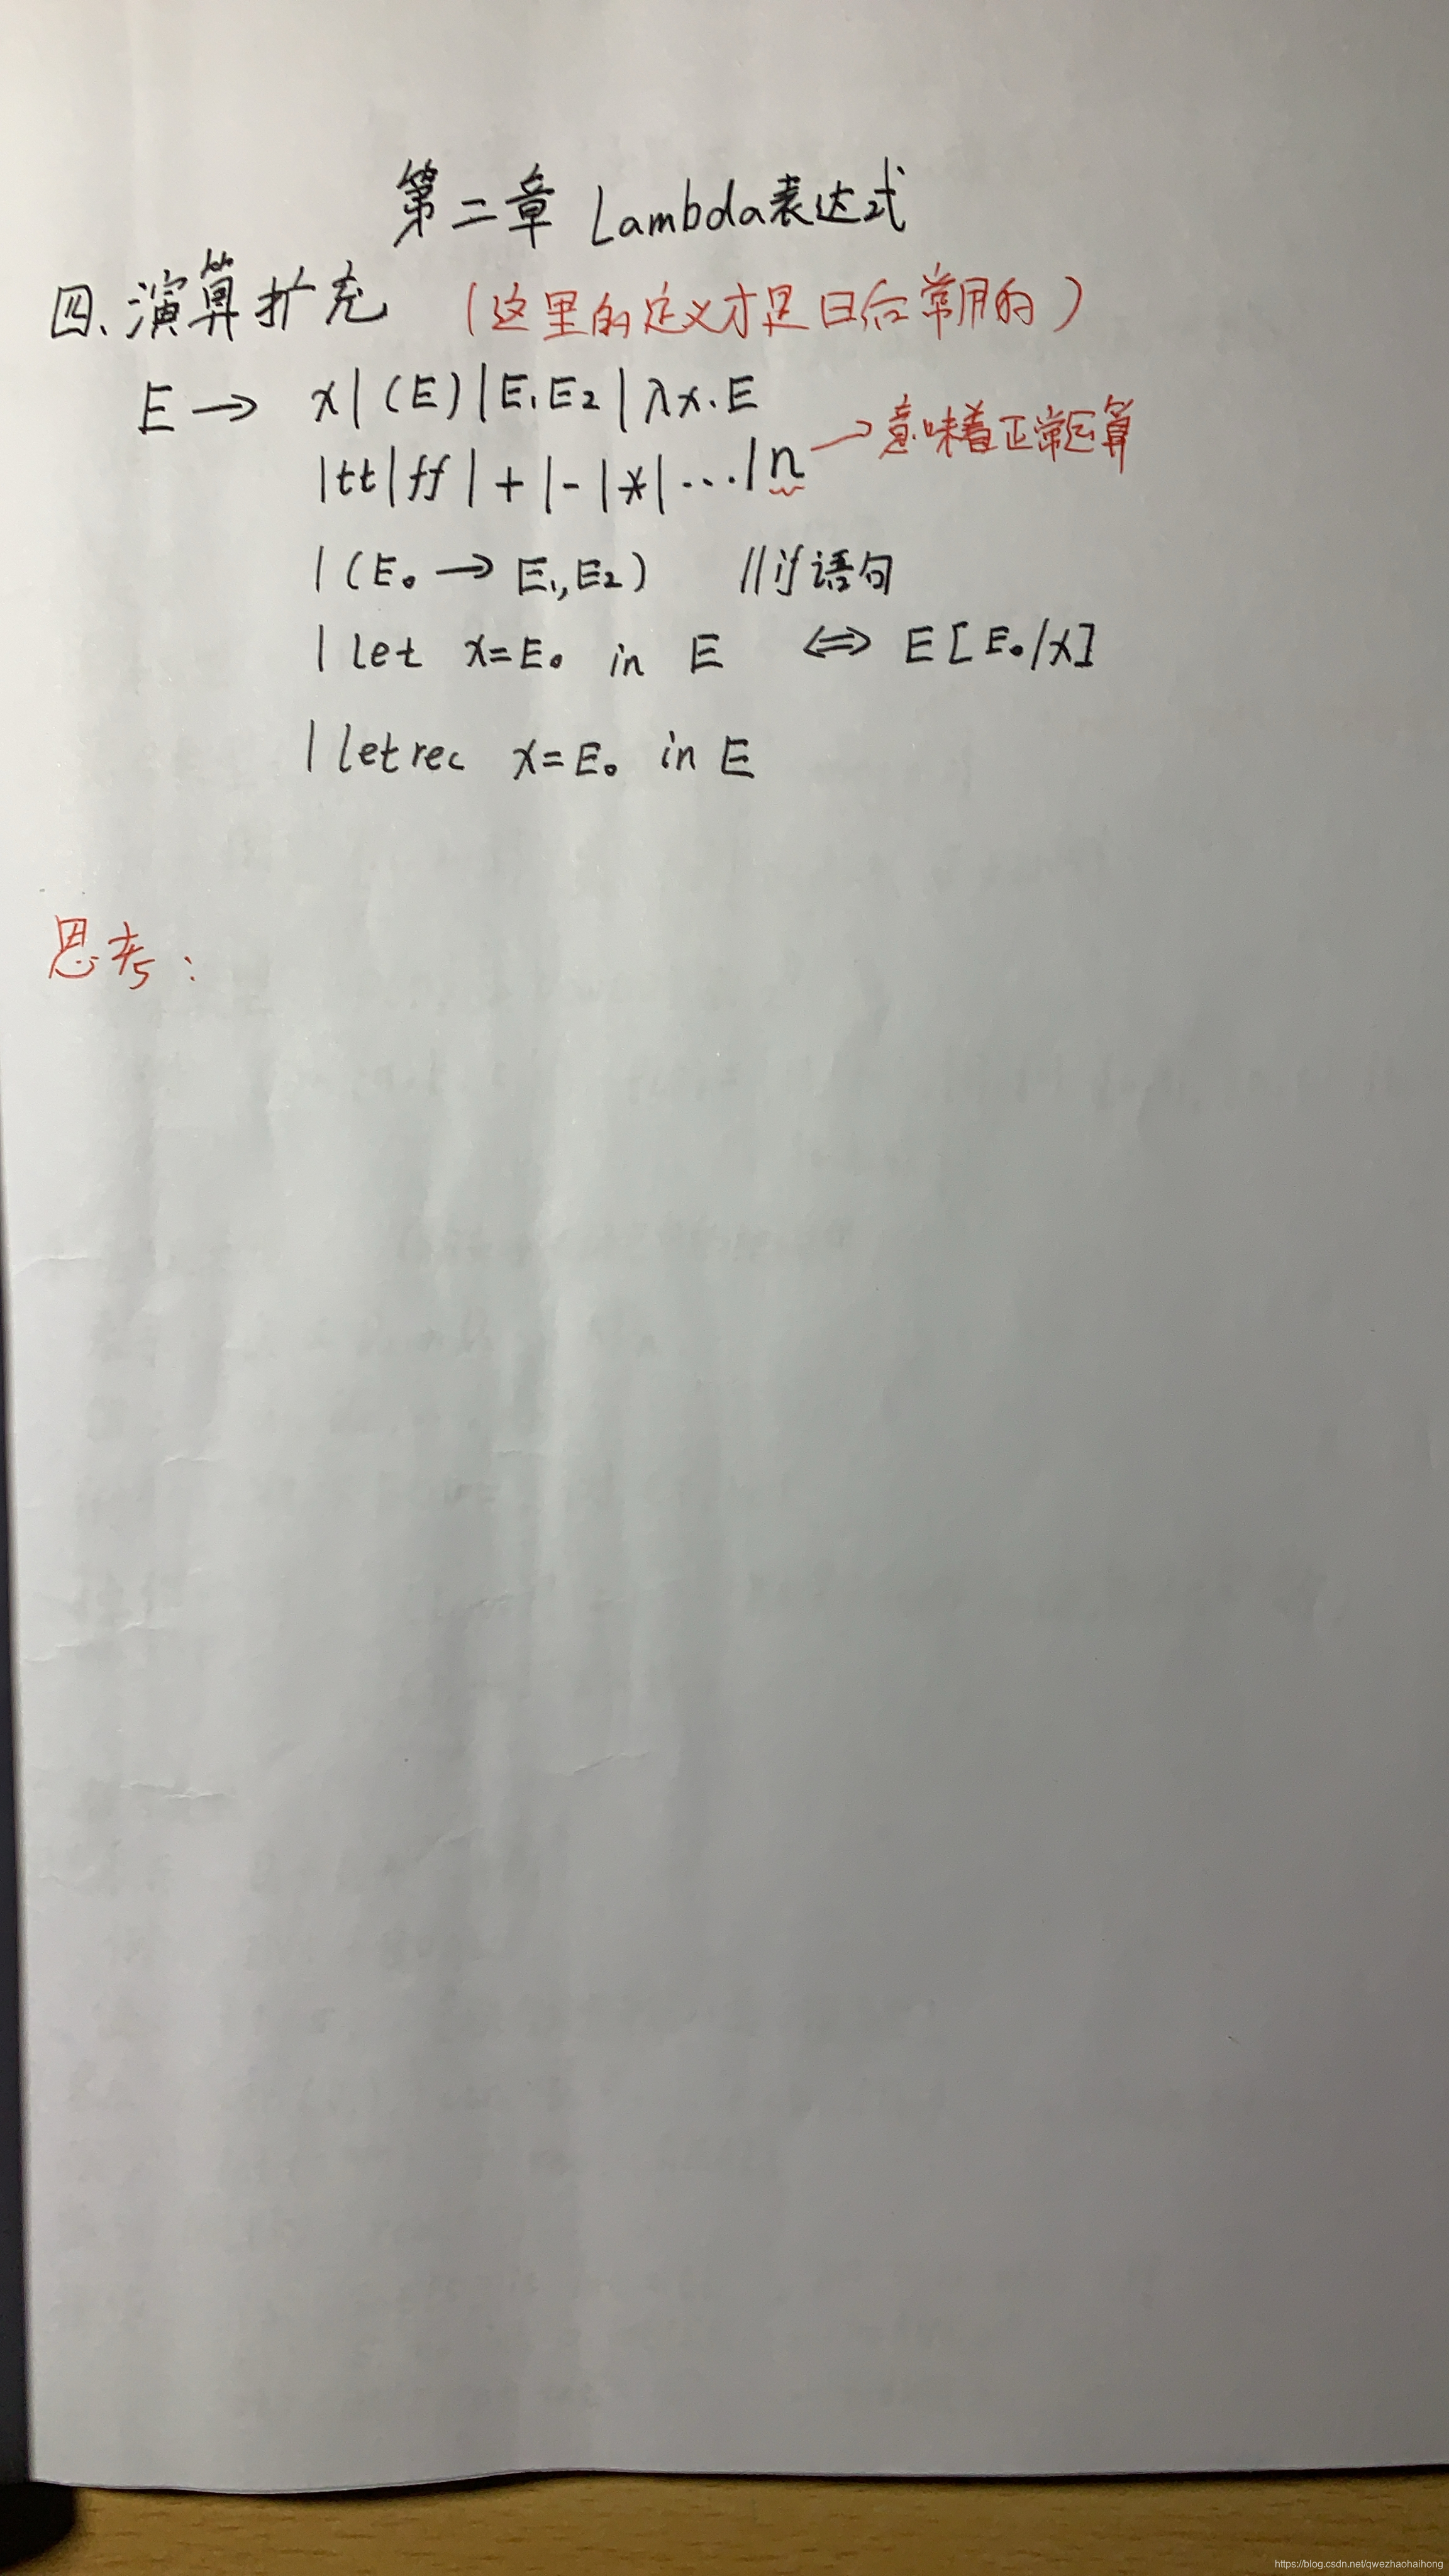 第二章 Lambda表达式
四、演算扩充 (这里的定义才是日后常用的)
E → x | (E) | E₁E₂ | λx.E
| tt | ff | + | - | * | ... | n → 意味着正常运算
| (E₀ → E₁, E₂) //if语句
| let x=E₀ in E ⇔ E[E₀/x]
| letrec x=E₀ in E
思考:
https://blog.csdn.net/qwezhaohaihong